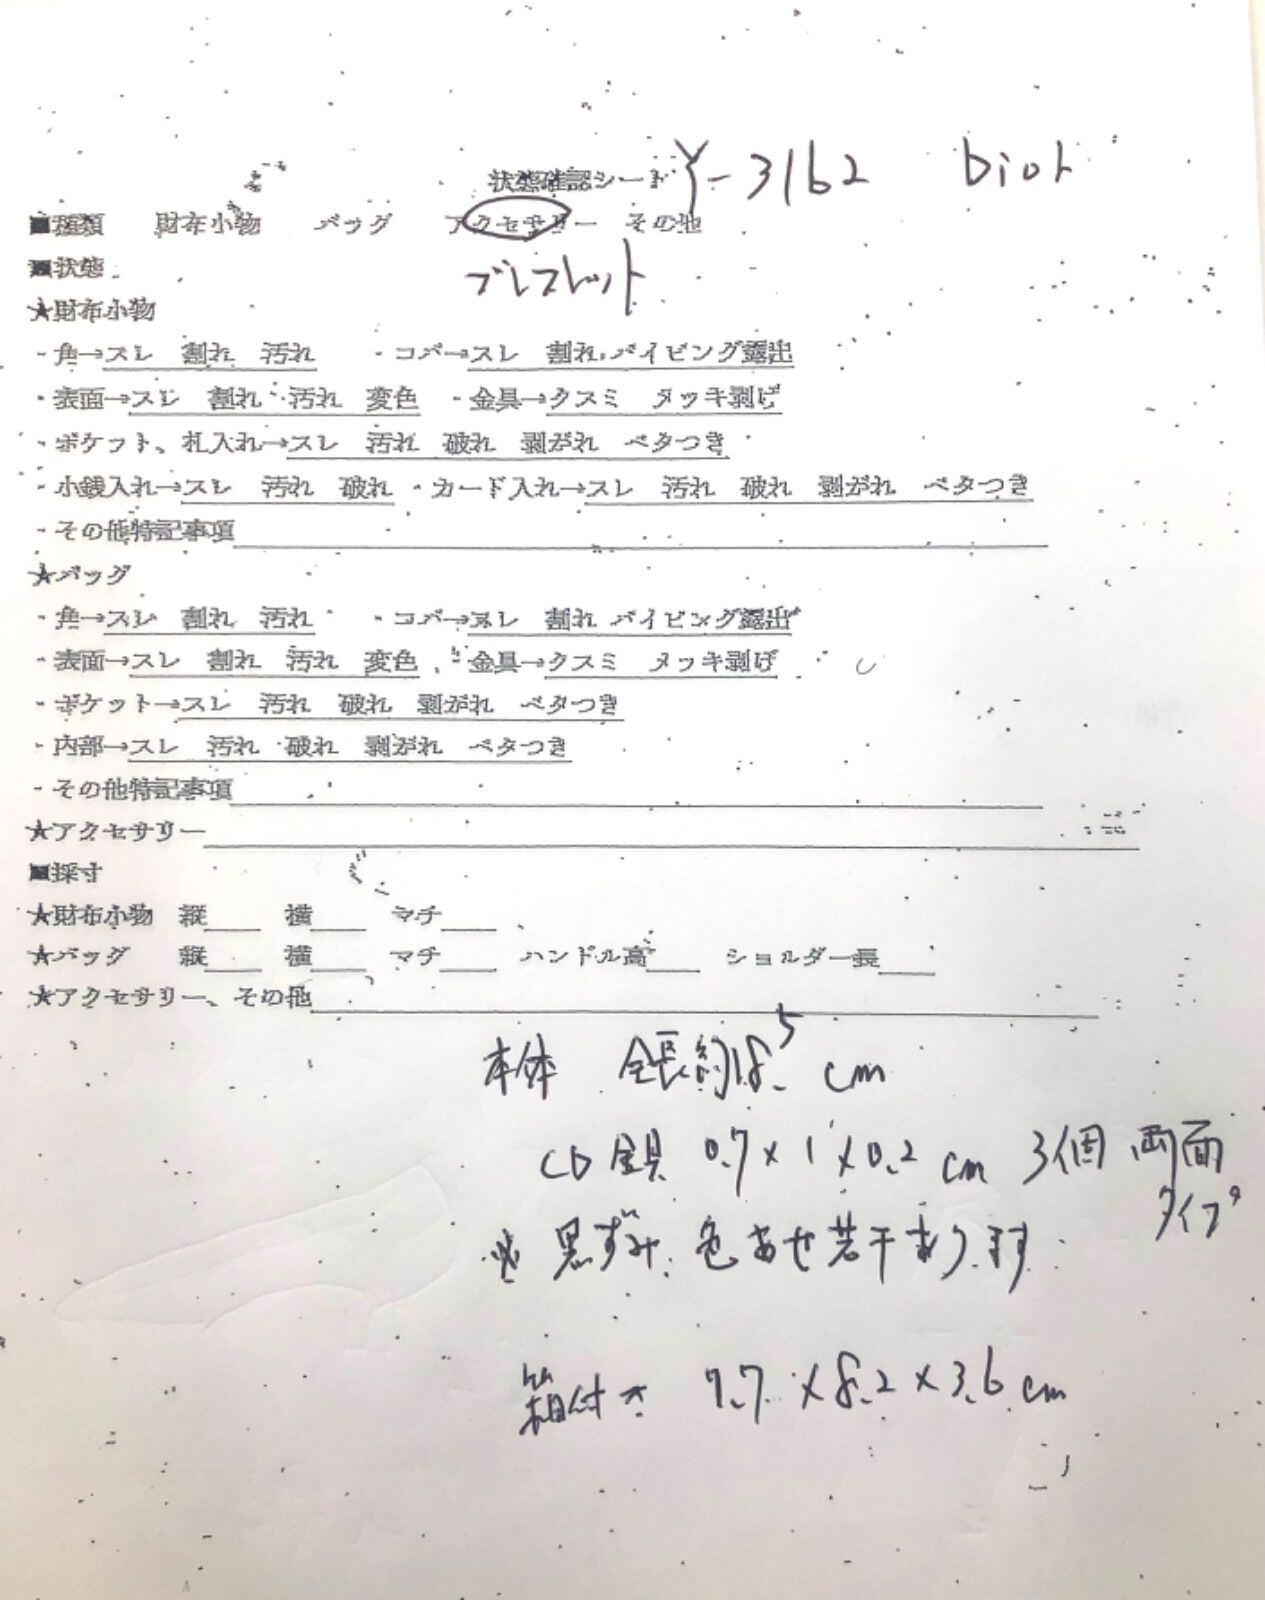 状態確認シート Y-3162 Dior
■種類 財布小物 バッグ アクセサリー その他
■状態 ブレスレット
★財布小物
・角→スレ 割れ 汚れ ・コバ→スレ 割れ パイピング露出
・表面→スレ 割れ 汚れ 変色 ・金具→クスミ メッキ剥げ
・ポケット、札入れ→スレ 汚れ 破れ 剥がれ ベタつき
・小銭入れ→スレ 汚れ 破れ ・カード入れ→スレ 汚れ 破れ 剥がれ ベタつき
・その他特記事項
★バッグ
・角→スレ 割れ 汚れ ・コバ→スレ 割れ パイピング露出
・表面→スレ 割れ 汚れ 変色 ・金具→クスミ メッキ剥げ
・ポケット→スレ 汚れ 破れ 剥がれ ベタつき
・内部→スレ 汚れ 破れ 剥がれ ベタつき
・その他特記事項
★アクセサリー
■採寸
★財布小物 縦 横 マチ
★バッグ 縦 横 マチ ハンドル高 ショルダー長
★アクセサリー、その他
本体 全長約18.5cm
CD金具 0.7×1×0.2cm 3個 両面タイプ
※黒ずみ、色あせ若干あります
箱付* 7.7×8.2×3.6cm